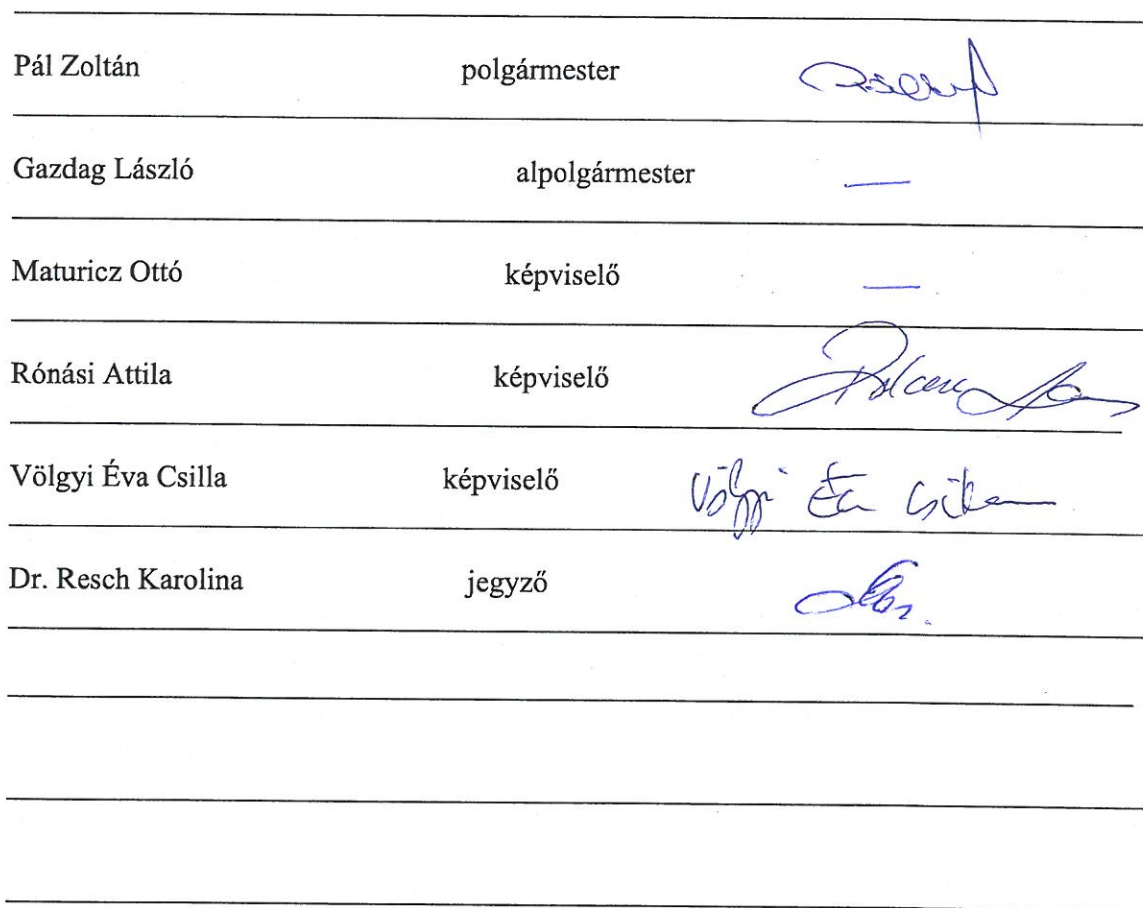 Pál Zoltán polgármester
Gazdag László alpolgármester —
Maturicz Ottó képviselő —
Rónási Attila képviselő
Völgyi Éva Csilla képviselő Völgyi Éva Csilla
Dr. Resch Karolina jegyző